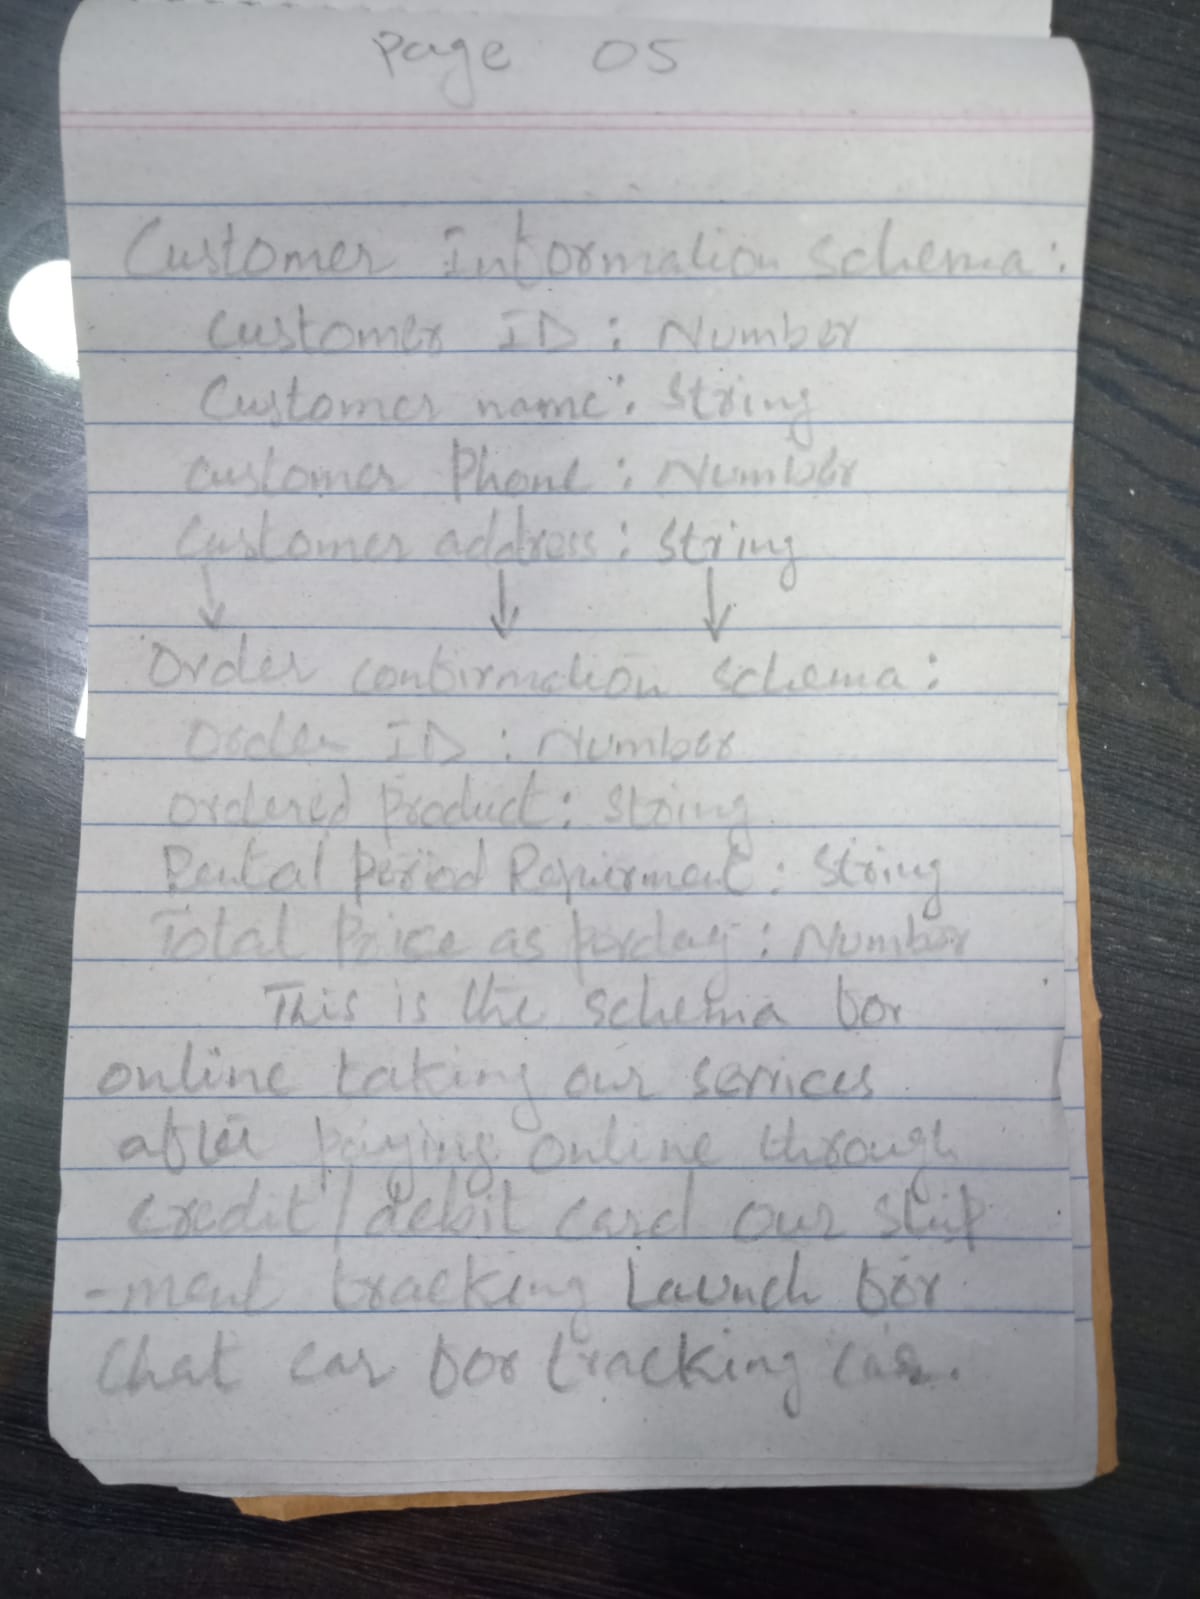 Page 05
Customer Information Schema:
Customer ID : Number
Customer name : String
Customer Phone : Number
Customer address : String
Order confirmation Schema :
Order ID : Number
Ordered Product : String
Rental Period Requirment : String
Total Price as perday : Number
This is the schema for
online taking our services
after paying online through
credit / debit card our ship
-ment tracking Launch for
that car for tracking car.